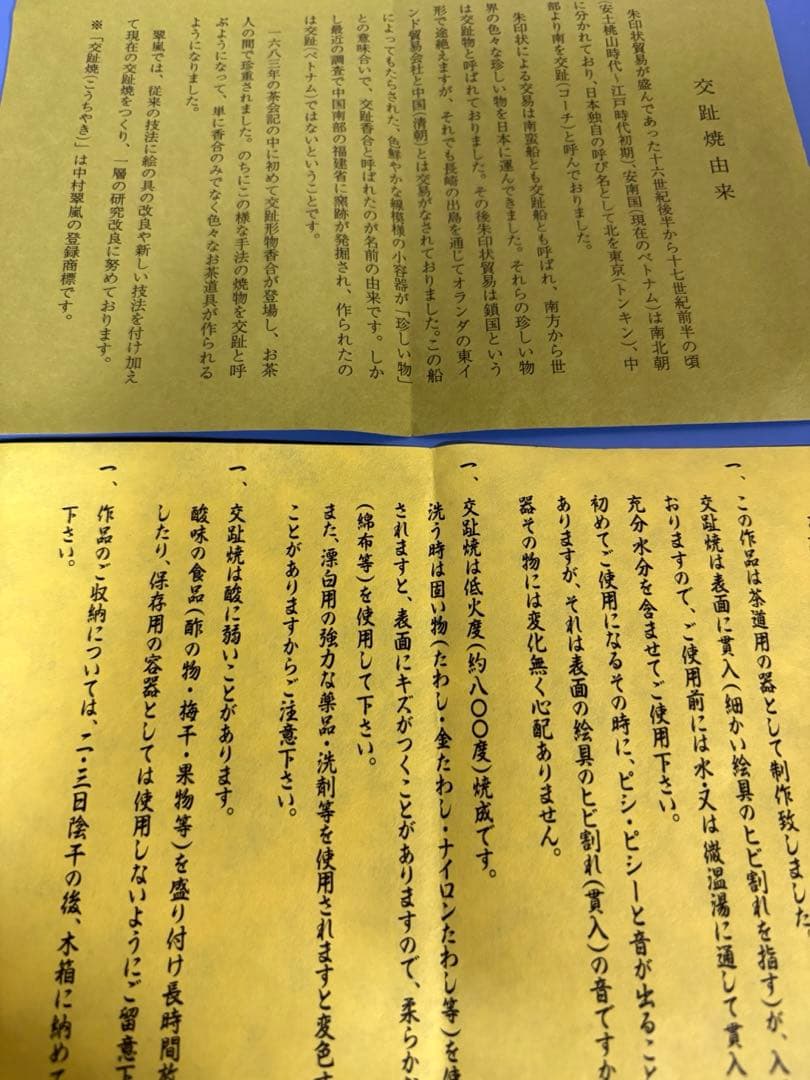 交趾焼由来
朱印状貿易が盛んであった十六世紀後半から十七世紀前半の頃
(安土桃山時代～江戸時代初期)、安南国(現在のベトナム)は南北朝
に分かれており、日本独自の呼び名として北を東京(トンキン)、中
部より南を交趾(コーチ)と呼んでおりました。
朱印状による交易は南蛮船とも交趾船とも呼ばれ、南方から世
界の色々な珍しい物を日本に運んできました。それらの珍しい物
は交趾物と呼ばれておりました。その後朱印状貿易は鎖国という
形で途絶えますが、それでも長崎の出島を通じてオランダの東イ
ンド貿易会社と中国(清朝)とは交易がなされておりました。この船
によってもたらされた、色鮮やかな線模様の小容器が「珍しい物」
との意味合いで、交趾香合と呼ばれたのが名前の由来です。しか
し最近の調査で中国南部の福建省に窯跡が発掘され、作られたの
は交趾(ベトナム)ではないということです。
一六八三年の茶会記の中に初めて交趾形物香合が登場し、お茶
人の間で珍重されました。のちにこの様な手法の焼物を交趾と呼
ぶようになって、単に香合のみでなく色々なお茶道具が作られる
ようになりました。
翠嵐では、従来の技法に絵の具の改良や新しい技法を付け加え
て現在の交趾焼をつくり、一層の研究改良に努めております。
※「交趾焼(こうちやき)」は中村翠嵐の登録商標です。
一、この作品は茶道用の器として制作致しました。
交趾焼は表面に貫入(細かい絵具のヒビ割れを指す)が、入
おりますので、ご使用前には水・又は微温湯に通して貫入
充分水分を含ませてご使用下さい。
初めてご使用になるその時に、ピシ・ピシーと音が出ること
ありますが、それは表面の絵具のヒビ割れ(貫入)の音ですか
器その物には変化無く心配ありません。
一、交趾焼は低火度(約八〇〇度)焼成です。
洗う時は固い物(たわし・金たわし・ナイロンたわし等)を使
されますと、表面にキズがつくことがありますので、柔らか
(綿布等)を使用して下さい。
また、漂白用の強力な薬品・洗剤等を使用されますと変色す
ことがありますからご注意下さい。
一、交趾焼は酸に弱いことがあります。
酸味の食品(酢の物・梅干・果物等)を盛り付け長時間放
したり、保存用の容器としては使用しないようにご留意下
一、作品のご収納については、二・三日陰干の後、木箱に納めて
下さい。